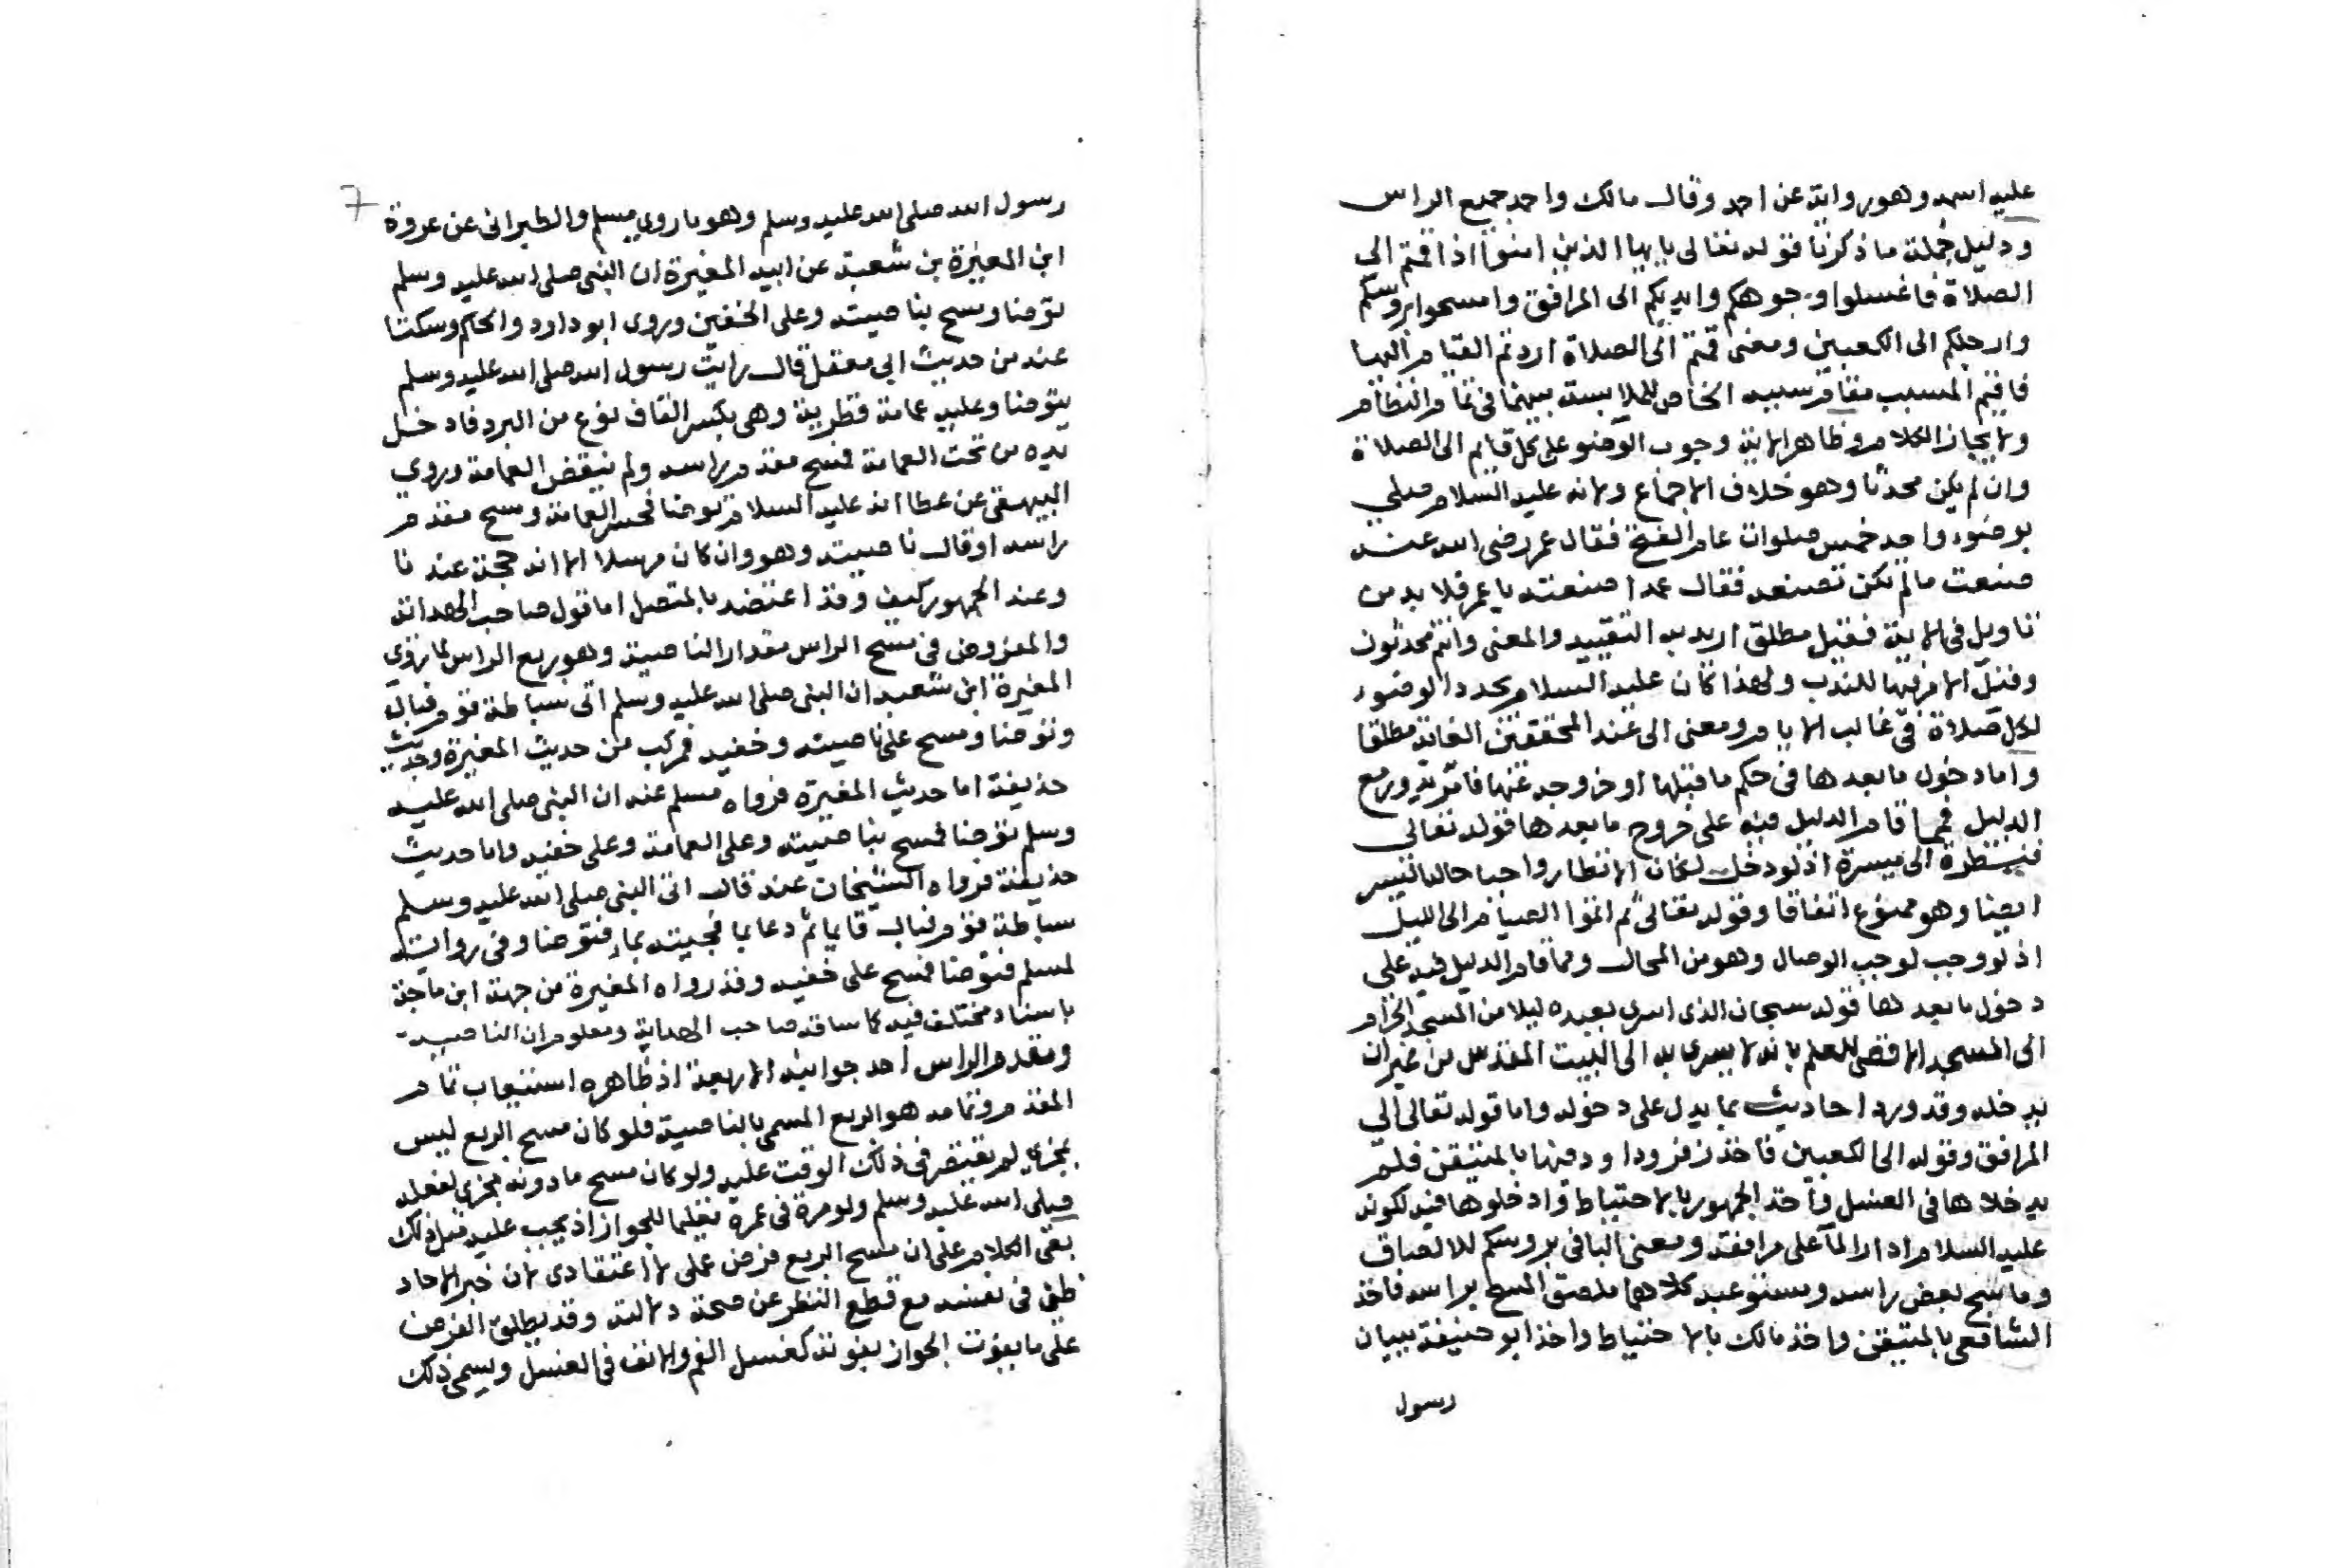 عليه اسمه وهو رواية عن احمد وقال مالك واحمد جميع الراس
ودليل جملة ما ذكرنا قوله تعالى يايها الذين امنوا اذا قمتم الى
الصلاة فاغسلوا وجوهكم وايديكم الى المرافق وامسحوا بروسكم
وارجلكم الى الكعبين ومعنى قمتم الى الصلاة اردتم القيام اليها
فاقيم المسبب مقام سببه الخاص للملابسة بينهما في تمام انتظام
ولايجاز الكلام وظاهر الاية وجوب الوضو على كل قايم الى الصلاة
وان لم يكن محدثا وهو خلاف الاجماع ولانه عليه السلام صلى
بوضوء واحد خمس صلوات عام الفتح فقال عمر رضى الله عنه
صنعت ما لم تكن تصنعه فقال عمدا صنعته يا عمر فلا بد من
تاويل في الاية فقيل مطلق اريد به التقييد والمعنى وانتم محدثون
وقيل الامر فيها للندب ولهذا كان عليه السلام يجدد الوضوء
لكل صلاة في غالب الايام ومعنى الى عند المحققين الغاية مطلقا
واما دخول ما بعدها في حكم ما قبلها او خروجه عنها فامر يدور مع
الدليل فمما قام الدليل فيه على خروج ما بعدها قوله تعالى
فنظرة الى ميسرة اذ لو دخل لكان الانتظار واجبا حال التيسر
ايضا وهو ممنوع اتفاقا وقوله تعالى ثم اتموا الصيام الى الليل
اذ لو وجب لوجب الوصال وهو من المحال ومما قام الدليل فيه على
دخول ما بعدها قوله سبحان الذى اسرى بعبده ليلا من المسجد الحرام
الى المسجد الاقصى للعلم بانه لا يسرى به الى البيت المقدس من غير ان
يدخله وقد ورد احاديث بما يدل على دخوله واما قوله تعالى الى
المرافق وقوله الى الكعبين فاخذ زفر وداود فيها بالمتيقن فلم
يدخلاها في الغسل واخذ الجمهور بالاحتياط وادخلوها فيه لكونه
عليه السلام ادار الماء على مرافقه ومعنى البا في بروسكم للالصاق
وماسح بعض راسه ومستوعبه كلاهما ملصق المسح براسه فاخذ
الشافعى بالمتيقن واخذ مالك بالاحتياط واخذ ابو حنيفة ببيان
رسول
7
رسول الله صلى الله عليه وسلم وهو ما روى مسلم والطبرانى عن عروة
ابن المغيرة بن شعبة عن ابيه المغيرة ان النبى صلى الله عليه وسلم
توضا ومسح بناصيته وعلى الخفين وروى ابو داود والحاكم وسكتا
عنه من حديث ابى معقل قال رايت رسول الله صلى الله عليه وسلم
يتوضا وعليه عمامة قطرية وهى بكسر القاف نوع من البرد فادخل
يده من تحت العمامة فمسح مقدم راسه ولم ينقض العمامة وروى
البيهقى عن عطا انه عليه السلام توضا فحسر العمامة ومسح مقدم
راسه او قال ناصيته وهو وان كان مرسلا الا انه حجة عندنا
وعند الجمهور كيف وقد اعتضد بالمتصل اما قول صاحب الهداية
والمفروض في مسح الراس مقدار الناصية وهو ربع الراس لما روى
المغيرة ابن شعبه ان النبى صلى الله عليه وسلم اتى سباطة قوم فبال
وتوضا ومسح على ناصيته وخفيه فمركب من حديث المغيرة وحديث
حذيفة اما حديث المغيرة فرواه مسلم عنه ان النبى صلى الله عليه
وسلم توضا فمسح بناصيته وعلى العمامة وعلى خفيه واما حديث
حذيفة فرواه الشيخان عنه قال اتى النبى صلى الله عليه وسلم
سباطة قوم فبال قايما ثم دعا بما فجيته بماء فتوضا وفى رواية
لمسلم فتوضا فمسح على خفيه وقد رواه المغيرة من جهة ابن ماجة
باسناد مختلف فيه كما ساقه صاحب الهداية ومعلوم ان الناصية
ومقدم الراس احد جوانبه الاربعة اذ ظاهره استيعاب تمام
المقدم وتمامه هو الربع المسمى بالناصية فلو كان مسح الربع ليس
بمجزي لم يقتصر في ذلك الوقت عليه ولو كان مسح ما دونه مجزى لفعله
صلى الله عليه وسلم ولو مرة في عمره تعليما للجواز اذ يجب عليه مثل ذلك
بقى الكلام على ان مسح الربع فرض عملى لا اعتقادى لان خبر الاحاد
ظنى في نفسه مع قطع النظر عن صحة دلالته وقد يطلق الفرض
على ما يفوت الجواز بفوته كغسل الفم والانف في الغسل ويسمى ذلك